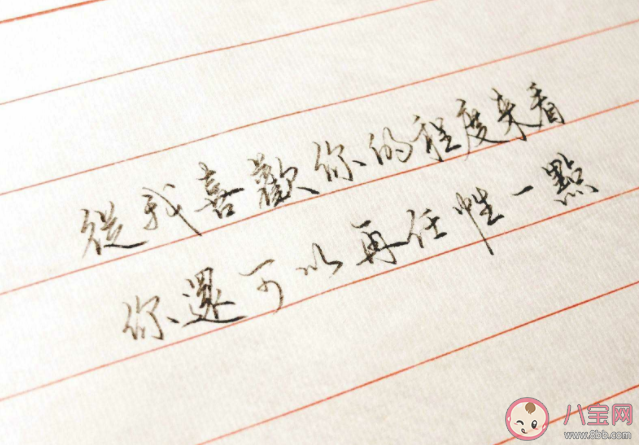 從我喜歡你的程度來看
你還可以再任性一點
八宝网
www.8bb.com